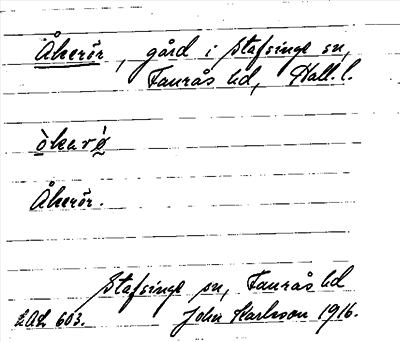 Åkerör, gård i Stafsinge sn,
Faurås hd, Hall. l.
òkarö̀
Åkerör.
Stafsinge sn, Faurås hd
LAL 603. John Karlsson 1916.